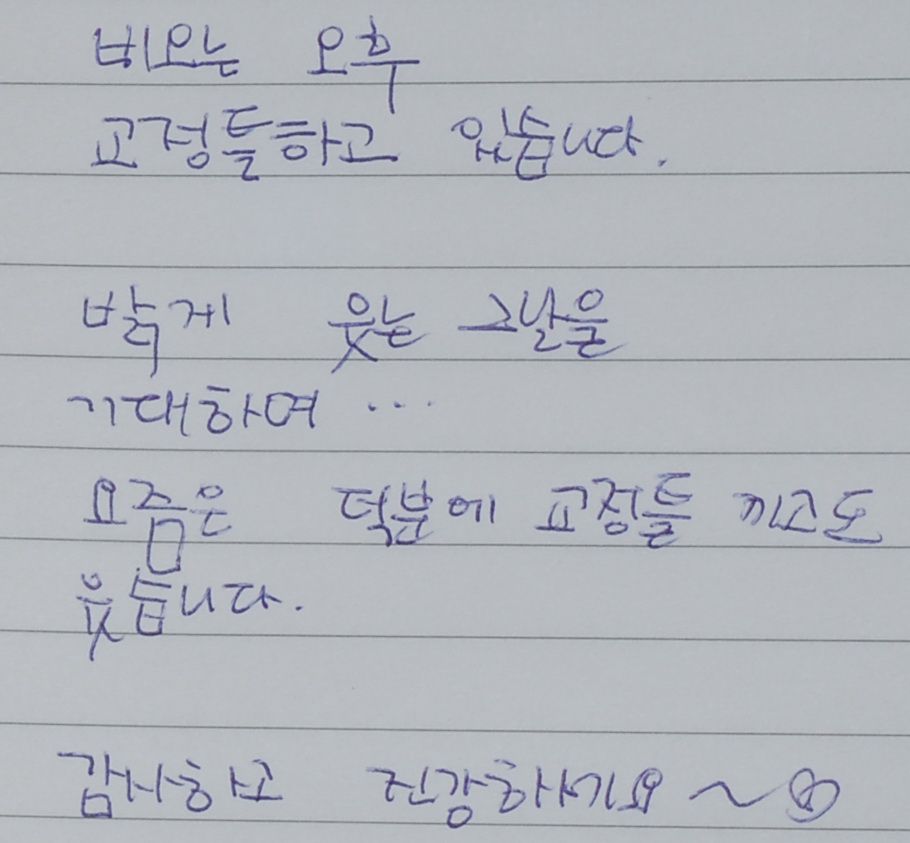 비오는 오후
교정틀하고 있습니다.
밝게 웃는 그날을
기대하여 ...
요즘은 덕분에 교정틀 끼고도
웃습니다.
감사하고 건강하세요~